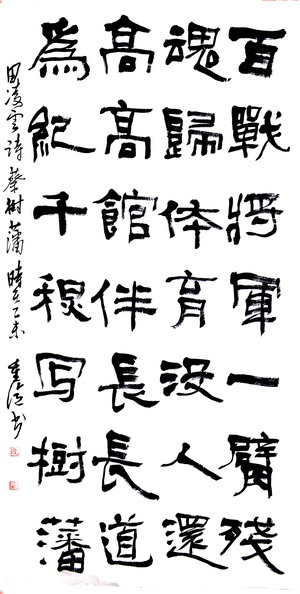 百戰將軍一臂殘
魂歸体育没人還
高高館伴長長道
為紀千写樹藩
田凌雲詩蔡樹藩 時在乙未 书